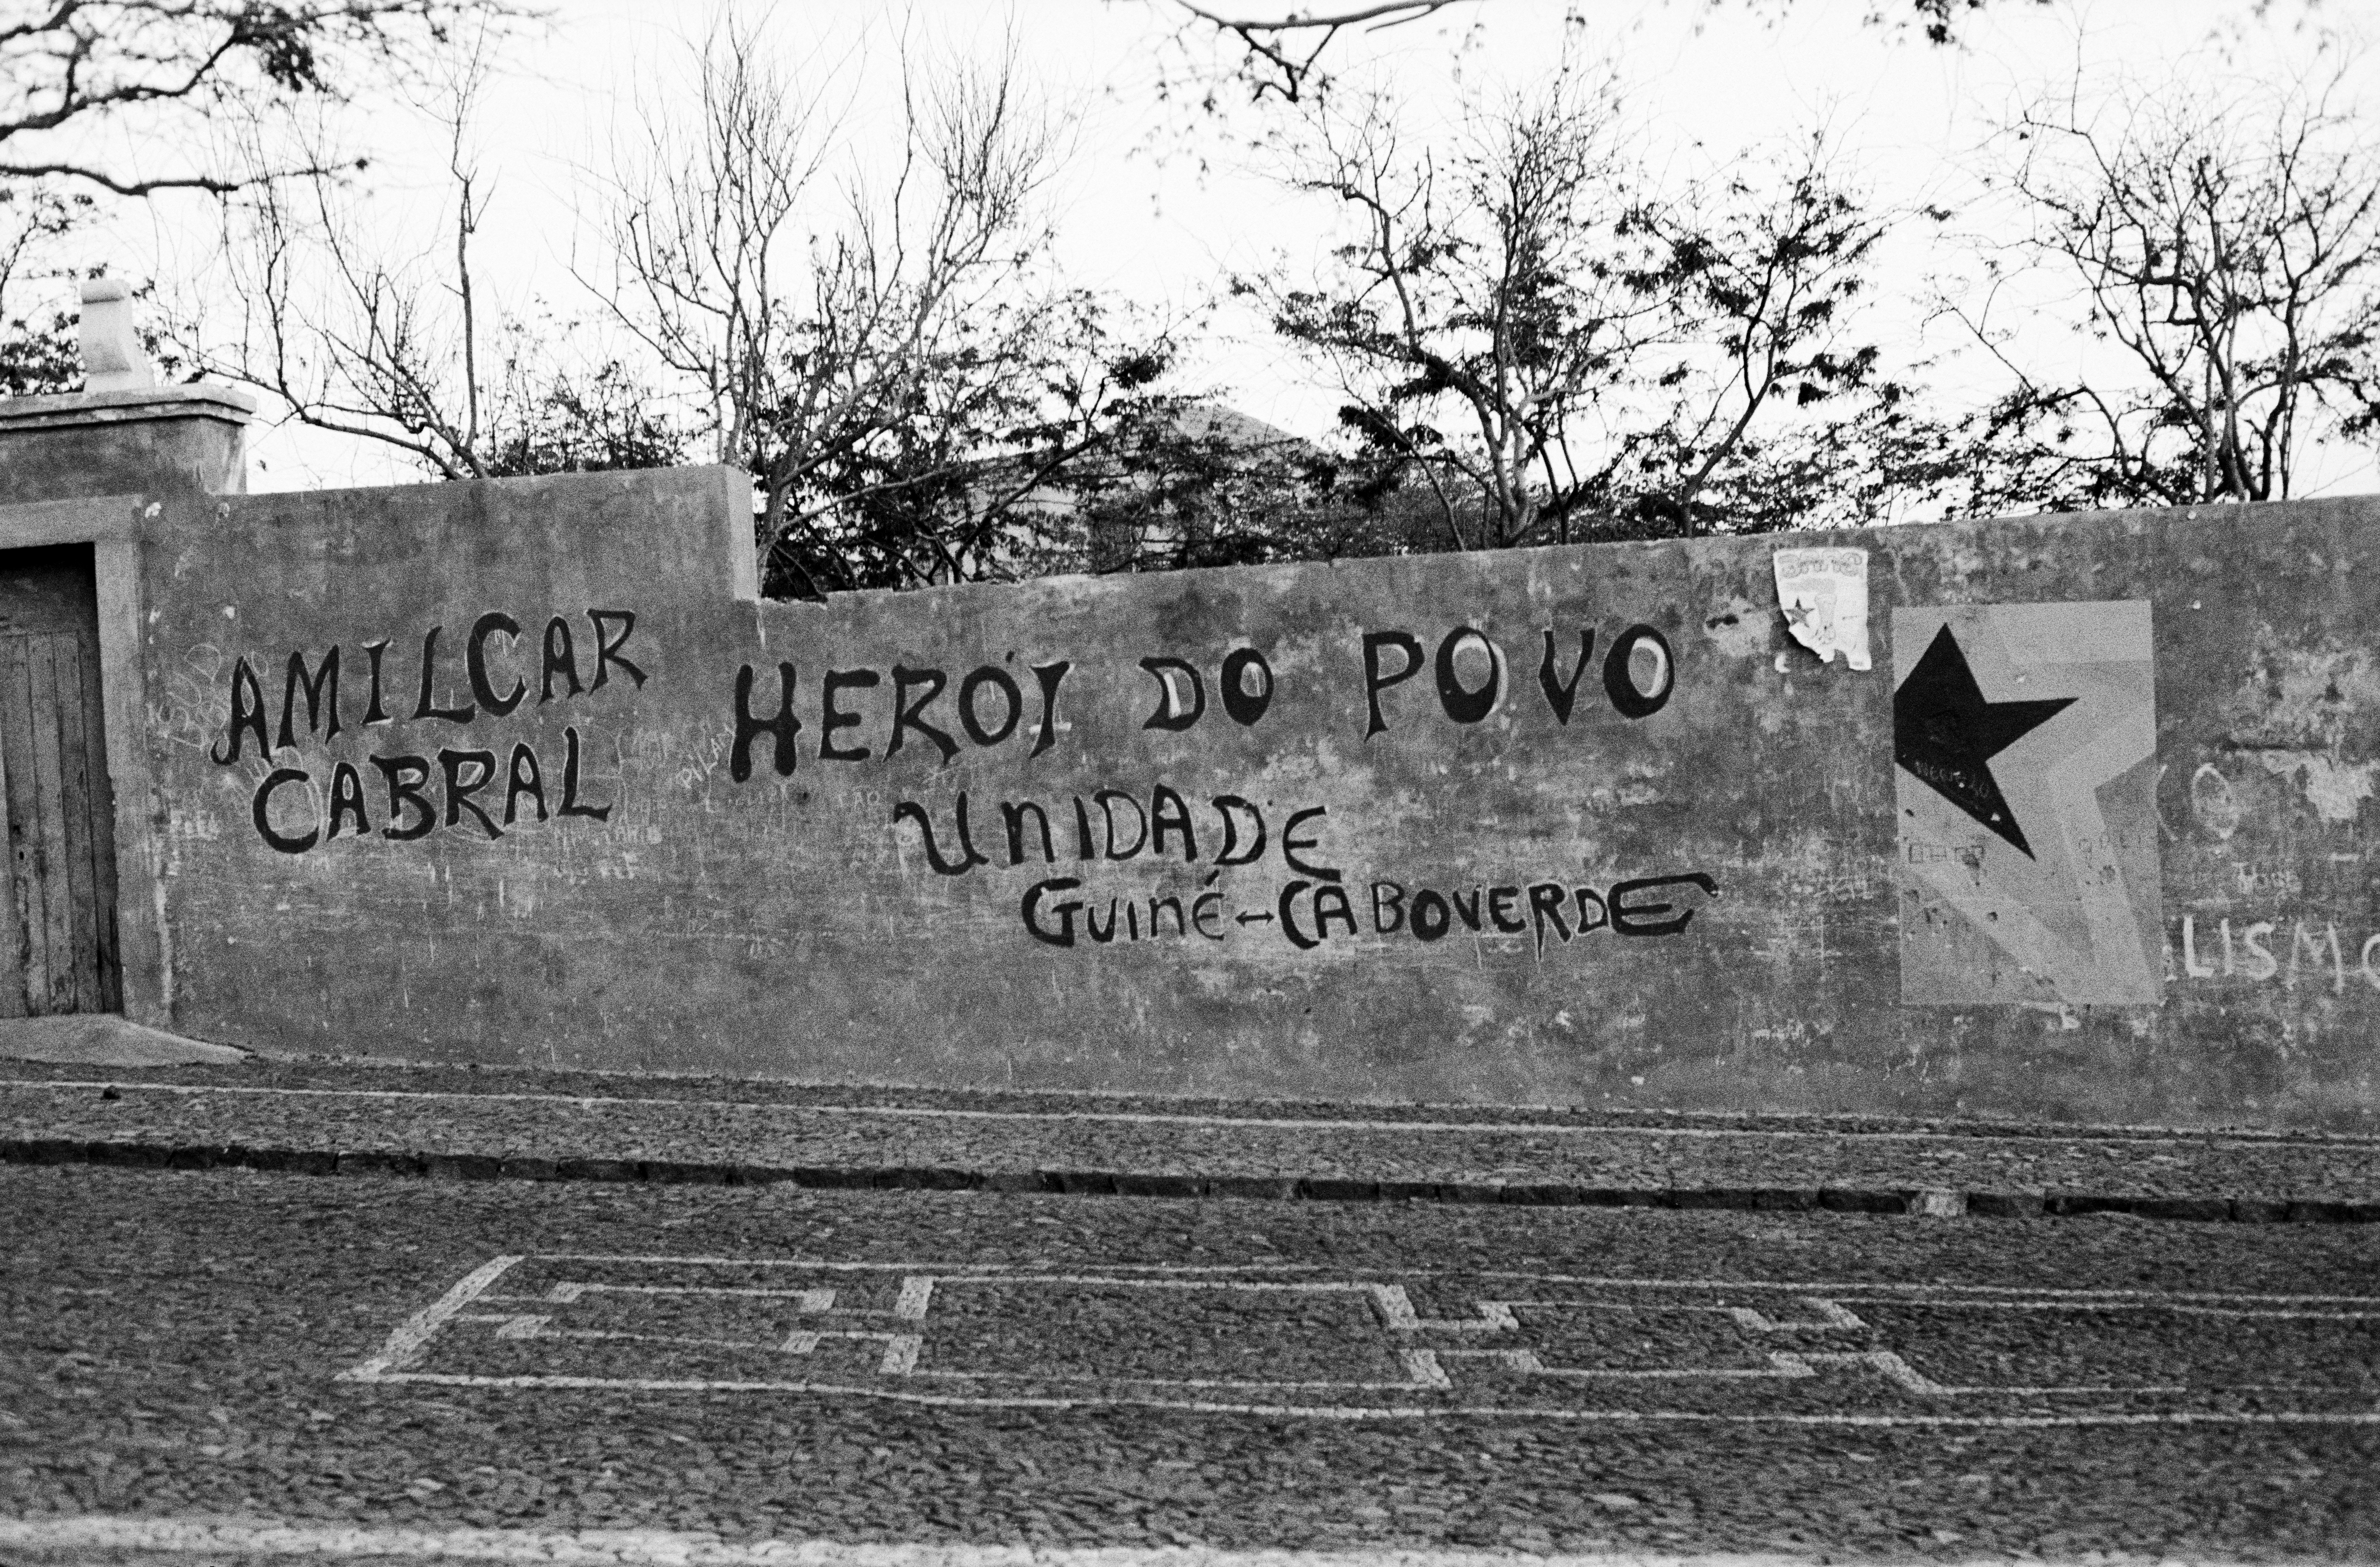 AMILCAR
CABRAL
HERÓI DO POVO
UNIDADE
GUINÉ↔CABOVERDE
PILAM
LISMO